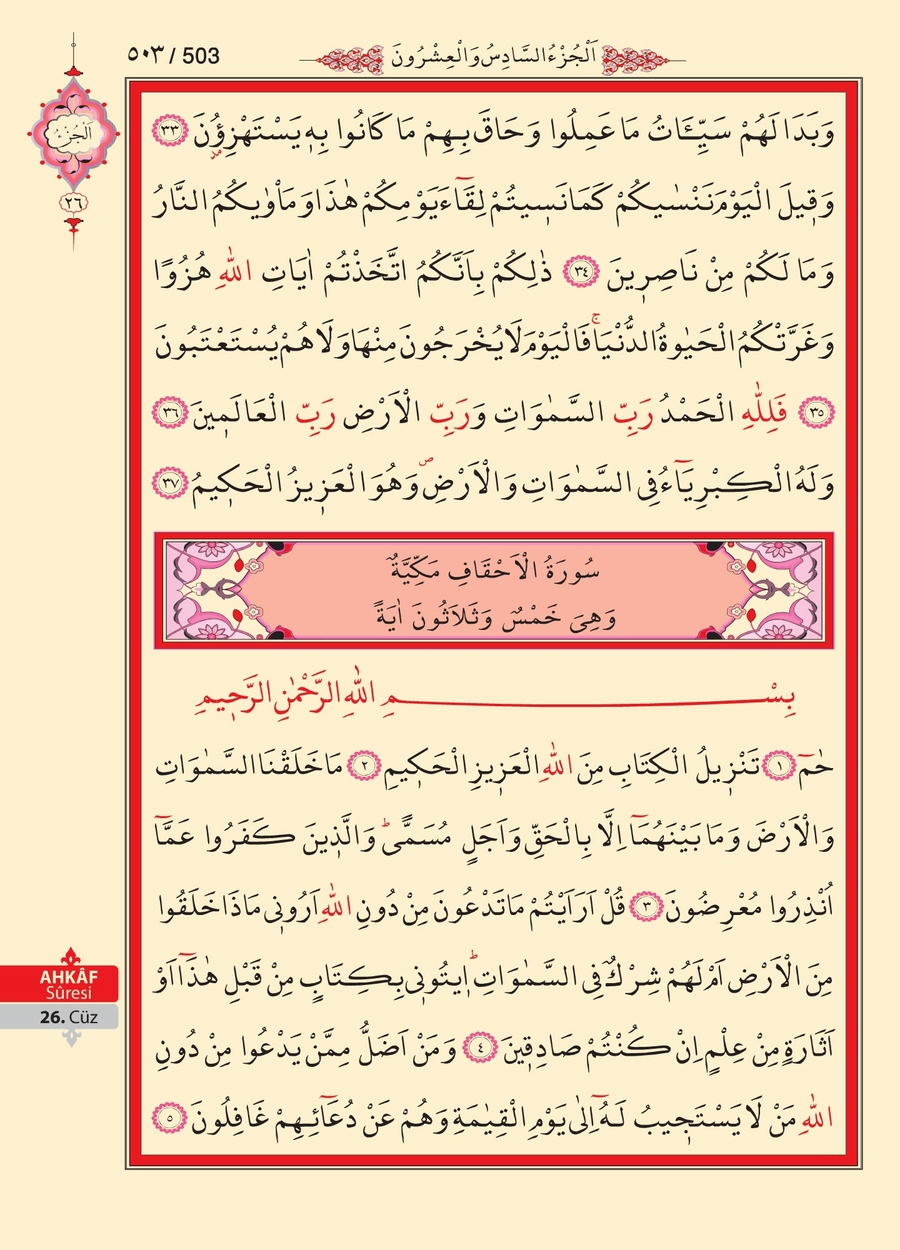 ٥٠٣ / 503
اَلْجُزْءُ السَّادِسُ وَالْعِشْرُونَ
اَلْجُزْءُ
٢٦
وَبَدَا لَهُمْ سَيِّـَٔاتُ مَا عَمِلُوا وَحَاقَ بِهِمْ مَا كَانُوا بِه۪ يَسْتَهْزِؤُ۫نَ ﴿٣٣﴾
وَق۪يلَ الْيَوْمَ نَنْسٰيكُمْ كَمَا نَس۪يتُمْ لِقَٓاءَ يَوْمِكُمْ هٰذَا وَمَأْوٰيكُمُ النَّارُ
وَمَا لَكُمْ مِنْ نَاصِر۪ينَ ﴿٣٤﴾ ذٰلِكُمْ بِاَنَّكُمُ اتَّخَذْتُمْ اٰيَاتِ اللّٰهِ هُزُوًا
وَغَرَّتْكُمُ الْحَيٰوةُ الدُّنْيَاۚ فَالْيَوْمَ لَا يُخْرَجُونَ مِنْهَا وَلَا هُمْ يُسْتَعْتَبُونَ
﴿٣٥﴾ فَلِلّٰهِ الْحَمْدُ رَبِّ السَّمٰوَاتِ وَرَبِّ الْاَرْضِ رَبِّ الْعَالَم۪ينَ ﴿٣٦﴾
وَلَهُ الْكِبْرِيَٓاءُ فِي السَّمٰوَاتِ وَالْاَرْضِۖ وَهُوَ الْعَز۪يزُ الْحَك۪يمُ ﴿٣٧﴾
سُورَةُ الْاَحْقَافِ مَكِّيَّةٌ
وَهِيَ خَمْسٌ وَثَلَاثُونَ اٰيَةً
بِسْمِ اللّٰهِ الرَّحْمٰنِ الرَّح۪يمِ
حٰمٓ ﴿١﴾ تَنْز۪يلُ الْكِتَابِ مِنَ اللّٰهِ الْعَز۪يزِ الْحَك۪يمِ ﴿٢﴾ مَا خَلَقْنَا السَّمٰوَاتِ
وَالْاَرْضَ وَمَا بَيْنَهُمَٓا اِلَّا بِالْحَقِّ وَاَجَلٍ مُسَمًّىۜ وَالَّذ۪ينَ كَفَرُوا عَمَّٓا
اُنْذِرُوا مُعْرِضُونَ ﴿٣﴾ قُلْ اَرَاَيْتُمْ مَا تَدْعُونَ مِنْ دُونِ اللّٰهِ اَرُون۪ي مَاذَا خَلَقُوا
مِنَ الْاَرْضِ اَمْ لَهُمْ شِرْكٌ فِي السَّمٰوَاتِۜ ا۪يتُون۪ي بِكِتَابٍ مِنْ قَبْلِ هٰذَٓا اَوْ
اَثَارَةٍ مِنْ عِلْمٍ اِنْ كُنْتُمْ صَادِق۪ينَ ﴿٤﴾ وَمَنْ اَضَلُّ مِمَّنْ يَدْعُوا مِنْ دُونِ
اللّٰهِ مَنْ لَا يَسْتَج۪يبُ لَهُٓ اِلٰى يَوْمِ الْقِيٰمَةِ وَهُمْ عَنْ دُعَٓائِهِمْ غَافِلُونَ ﴿٥﴾
AHKÂF
Sûresi
26. Cüz